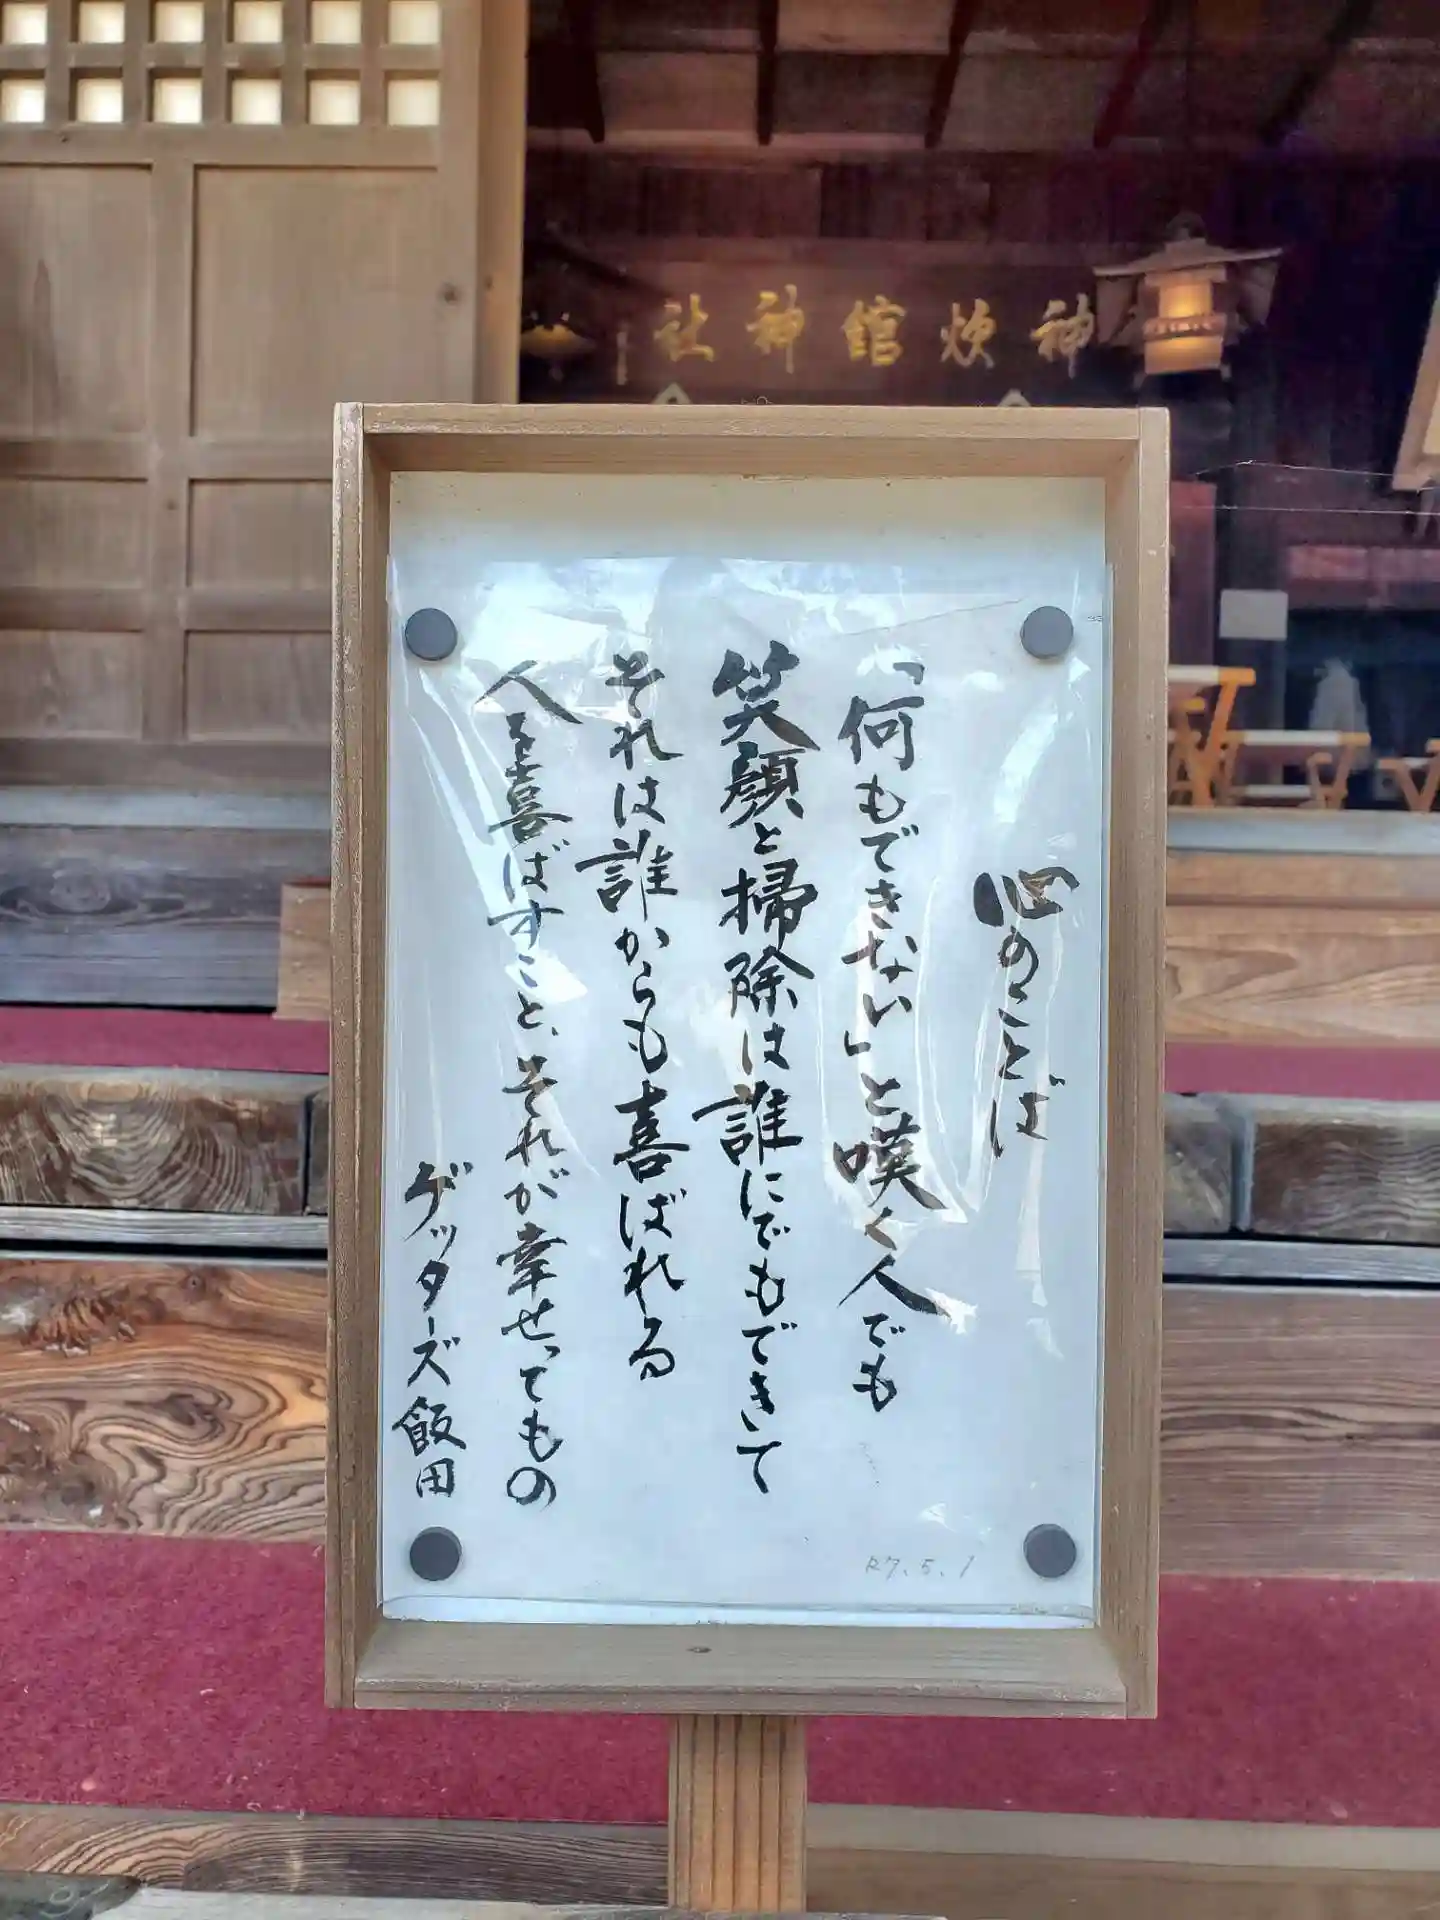 神炊館神社
心のことば
「何もできない」と嘆く人でも
笑顔と掃除は誰にでもできて
それは誰からも喜ばれる
人を喜ばすこと、それが幸せってもの
ゲッターズ飯田
R7.5.1